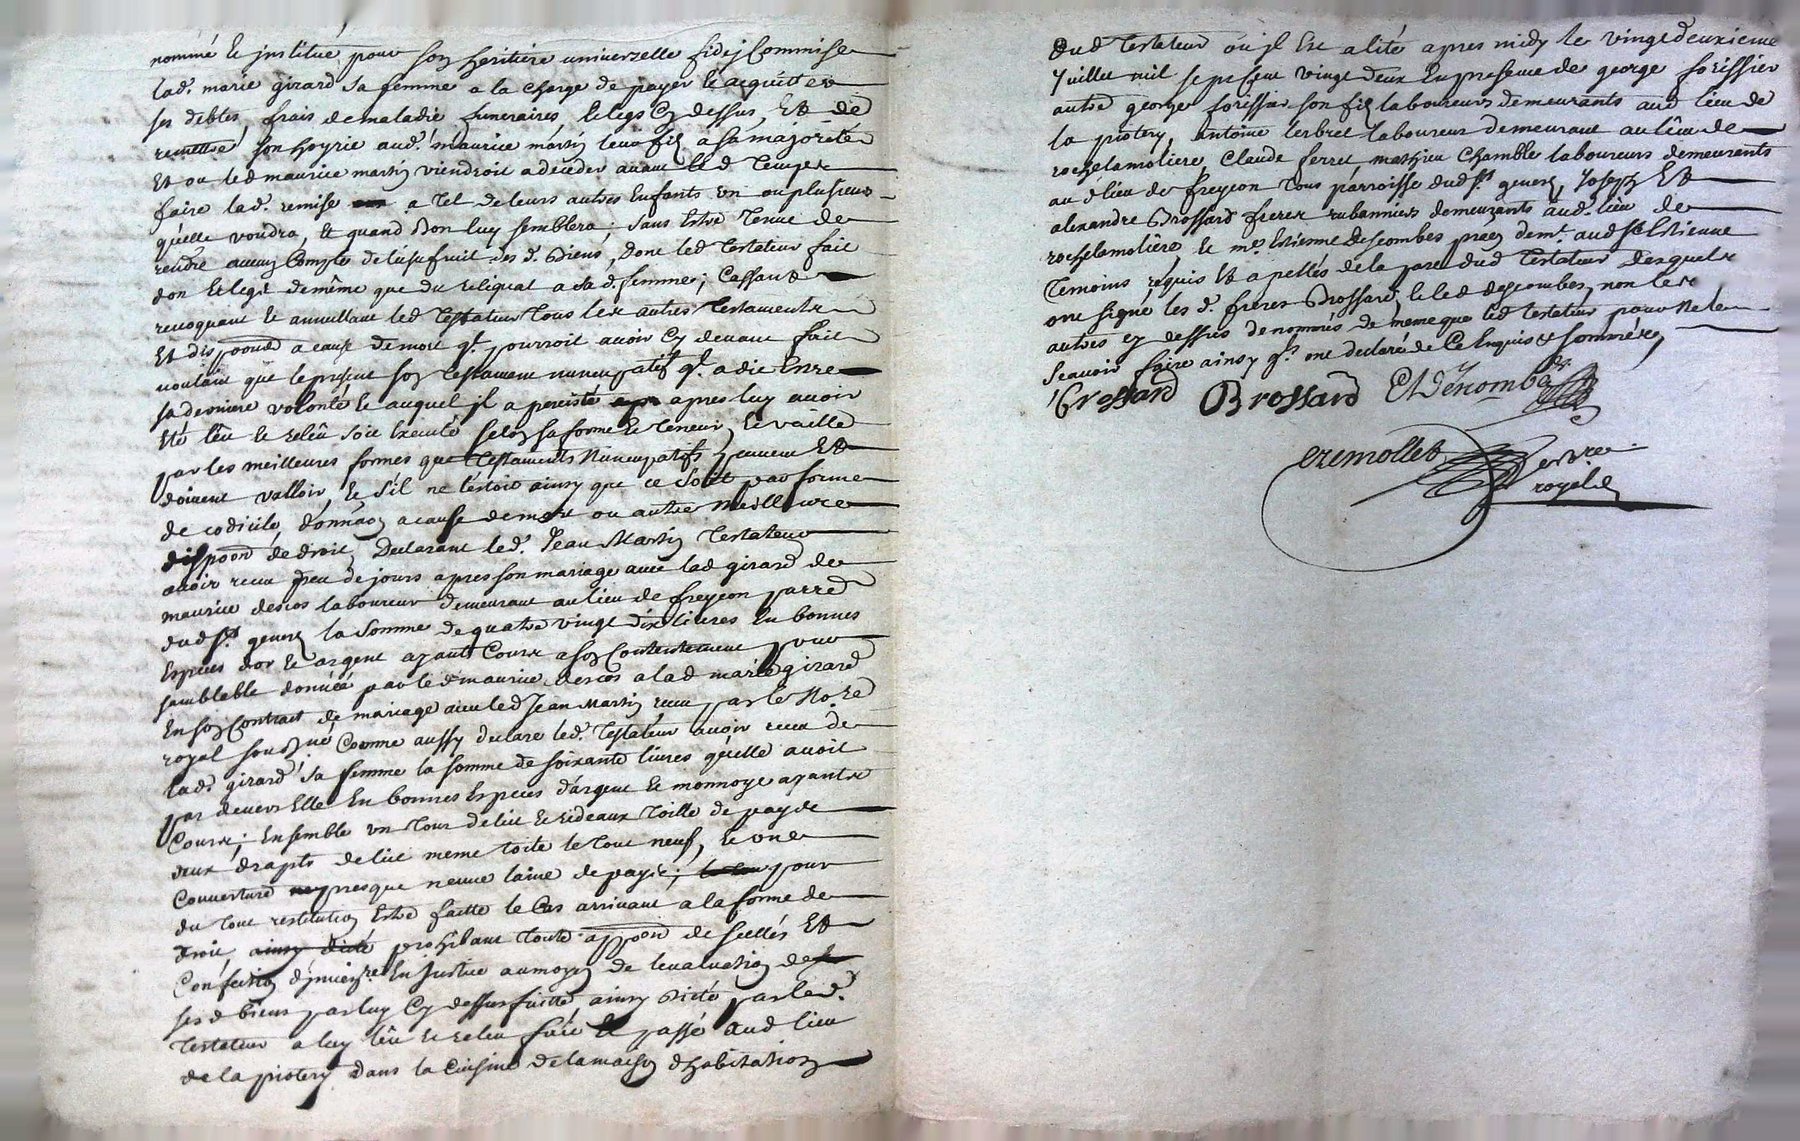 nommé et institué pour son heritiere universelle fidej Commise
lad. marie girard sa femme a la charge de payer et acquitter
ses debtes, frais de maladie funeraires, et legs cy dessus, Et de
remettre son hoyrie aud. maurice martin leur fils a sa majorité
Et ou led maurice martin viendroit a deceder avant led temps
faire lad. remise a tel de leurs autres Enfants un ou plusieurs
qu'elle voudra, et quand bon luy semblera; sans Estre tenue de
rendre aucun Compte de l'usufruit des d. biens, dont led testateur fait
don et legs de même que du reliquat a sad. femme; Cassant
revoquant et annullant led testateur tous les autres testaments
Et dispoond a cause de mort qt. pourroit avoir cy devant fait
voulant que le present son testament nuncupatif qt. a dit Estre
sa derniere volonté et auquel il a percisté apres luy avoir
Eté lëu et relëu soit Executé selon sa forme et teneur, et vaille
par les meilleures formes que testaments nuncupatifs peuvent Et
doivent valloir, Et s'il ne l'estoit ainsy que ce soit par forme
de codicile, donnaon a cause de mort ou autre meilleure
dispoond de droit, Declarant led. Jean Martin testateur
avoir receu peu de jours apres son mariage avec lad girard de
maurice descos laboureur demeurant au lieu de freycon parre
dud st. genest la somme de quatre vingt dix livres En bonnes
Especes d'or et argent ayants Cours a son Contentement pour
semblable donnéé par led maurice descos a lad marie girard
En son Contract de mariage avec led Jean Martin receu par le No.re
royal sousigné Comme aussy declare led. testateur avoir receu de
lad. girard sa femme la somme de soixante livres qu'elle avoit
par devers Elle En bonnes Especes d'argent et monnoye ayants
Cours; Ensemble un tour de lit et rideaux toille de pays
deux drapts de lit meme toile le tout neuf, et une
Couverture presque neuve laine de pays; pour
du tout restitution Estre faitte le Cas arrivant a la forme de
droit, ainsy dicté prohibant toute appoond de scellés Et
Confection d'jnuen.re En justice au moyen de l'evaluation de
ses d biens par luy Cy dessus faitte, ainsy dicté par led.
testateur a luy lëu et relëu fait et passé aud lieu
de la piotery dans la Cuisine de la maison d'habitation
dud testateur ou jl Est alité apres midy le vingt deuxieme
Juillet mil sept Cent vingt deux En presence de george forissier
autre george forissier son fils laboureurs demeurants aud lieu de
la piotery antoine lerbret laboureur demeurant au lieu de
rochelamoliere, Claude ferret mathieu Chamble laboureurs demeurants
au d lieu de freycon tous parroisse dud st genest, Joseph Et
alexandre Brossard freres rubanniers demeurants aud. lieu de
rochelamoliere, et me Estienne Descombes prat.n demt. aud St Estienne
temoins requis Et apellés de la part dud testateur desquels
ont signé les d. freres Brossard, et led descombes, non les
autres cy dessus denommés de meme que led testateur pour ne le
scavoir faire ainsy qls ont declaré de Ce Enquis et sommés,
Brossard Brossard
Cremollet
no.re
royal